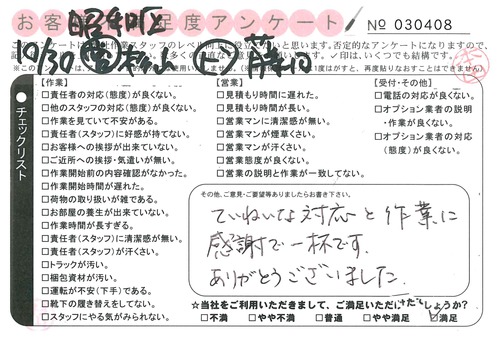 お客 足度アンケート
昭和区
№ 030408
10/30
【作業】
□責任者の対応(態度)が良くない。
□他のスタッフの対応(態度)が良くない。
□作業を見ていて不安がある。
□責任者(スタッフ)に好感が持てない。
□お客様への挨拶が出来ていない。
□ご近所への挨拶・気遣いが無い。
□作業開始前の内容確認がなかった。
□作業開始時間が遅れた。
□荷物の取り扱いが雑である。
□お部屋の養生が出来ていない。
□作業時間が長すぎる。
□責任者(スタッフ)に清潔感が無い。
□責任者(スタッフ)が汗くさい。
□トラックが汚い。
□梱包資材が汚い。
□運転が不安(下手)である。
□靴下の履き替えをしてない。
□スタッフにやる気がみられない。
【営業】
□見積もり時間に遅れた。
□見積もり時間が長い。
□営業マンに清潔感が無い。
□営業マンが煙草くさい。
□営業マンが汗くさい。
□営業態度が良くない。
□営業の説明と作業が一致してない。
【受付・その他】
□電話の対応が良くない。
□オプション業者の説明
・作業が良くない。
□オプション業者の対応
(態度)が良くない。
●チェックリスト
その他、ご意見・ご要望等ありましたらお書き下さい。
ていねいな対応と作業に
感謝で一杯です。
ありがとうございました。
☆当社をご利用いただきまして、ご満足いただけたでしょうか?
□不満 □やや不満 □普通 □やや満足 □満足